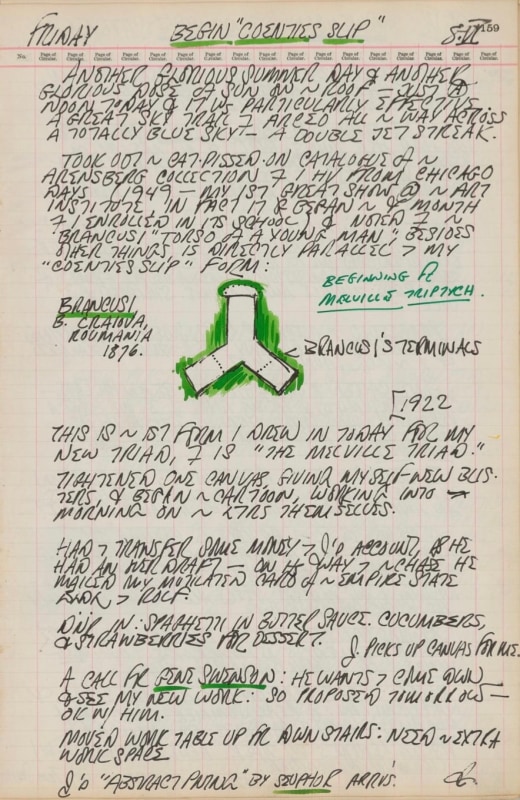 FRIDAY BEGIN "COENTIES SLIP" 8-VI 159
No. Page of Circular. Page of Circular. Page of Circular. Page of Circular. Page of Circular. Page of Circular. Page of Circular. Page of Circular. Page of Circular. Page of Circular. Page of Circular. Page of Circular.
ANOTHER GLORIOUS SUMMER DAY & ANOTHER
GLORIOUS DOSE OF SUN ON ~ ROOF — JUST @
NOON TODAY & IT WS PARTICULARLY EFFECTIVE.
A GREAT SKY TRAIL 7 ARCED ALL ~ WAY ACROSS
A TOTALLY BLUE SKY — A DOUBLE JET STREAK.
TOOK OUT ~ CAT-PISSED-ON CATALOGUE OF ~
ARENSBERG COLLECTION 7 I HV FROM CHICAGO
DAYS — 1949 — MY 1ST GREAT SHOW @ ~ ART
INSTITUTE IN FACT IT BEGAN ~ MONTH
7 I ENROLLED IN ITS SCHOOL & NOTED 7 ~
BRANCUSI "TORSO OF A YOUNG MAN", BESIDES
OTHER THINGS IS DIRECTLY PARALLEL > MY
"COENTIES SLIP" FORM:
BEGINNING
MELVILLE TRIPTYCH.
BRANCUSI
B. CRAIOVA,
ROUMANIA
1876.
BRANCUSI'S TERMINALS
[1922
THIS IS ~ 1ST FORM I DREW IN TODAY FOR MY
NEW TRIAD, 7 IS "THE MELVILLE TRIAD."
TIGHTENED ONE CANVAS, GIVING MYSELF NEW BLIS-
TERS, & BEGAN ~ CARTOON, WORKING INTO ~
MORNING ON ~ LTRS THEMSELVES.
HAD > TRANSFER SOME MONEY > J'S ACCOUNT, AS HE
HAD AN OVERDRAFT — ON HS WAY > ~ CHASE HE
MAILED MY CARD OF ~ EMPIRE STATE
> ROLF.
DINR IN: SPAGHETTI IN BUTTER SAUCE. CUCUMBERS,
& STRAWBERRIES FOR DESSERT.
J. PICKS UP CANVAS FOR ME.
A CALL FR GENE SWENSON: HE WANTS > COME DOWN
& SEE MY NEW WORK: SO PROPOSED TOMORROW —
OK W/ HIM.
MOVED WORK TABLE UP FR DOWNSTAIRS: NEED ~ EXTRA
WORK SPACE
J'S "ABSTRACT PAINTING" BY SEUPHOR ARRIVS.